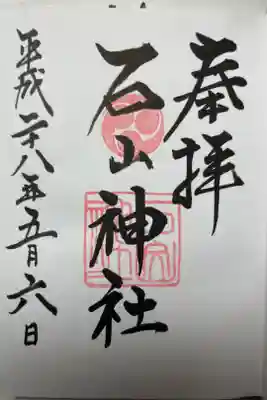 奉拝
石山神社
平成二十八年五月六日